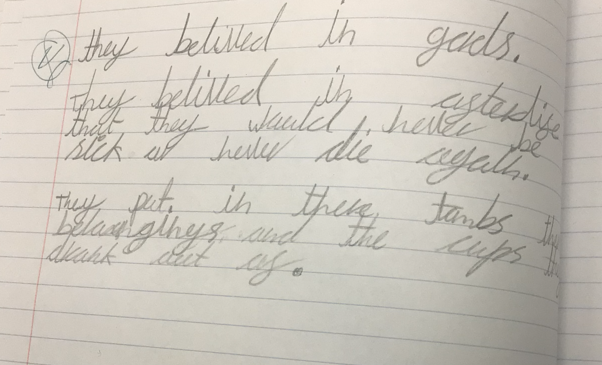 they belived in gods.
They belived in afterlife
that they would, never be
sick or never die again.
They put. in there tombs the
belongings, and the cups
drank out of.